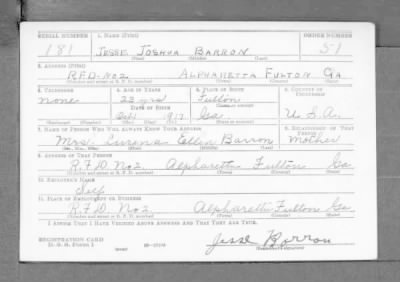 SERIAL NUMBER 1. NAME (Print) ORDER NUMBER
181 JESSE JOSHUA BARRON 51
(First) (Middle) (Last)
2. ADDRESS (Print)
R.F.D. NO2 ALPHARETTA FULTON GA
(Number and street or R. F. D. number) (Town) (County) (State)
3. TELEPHONE 4. AGE IN YEARS 5. PLACE OF BIRTH 6. COUNTRY OF CITIZENSHIP
none 23 yrs Fulton
DATE OF BIRTH
Oct 1917 Ga U.S.A.
7. NAME OF PERSON WHO WILL ALWAYS KNOW YOUR ADDRESS 8. RELATIONSHIP OF THAT PERSON
Mrs. Ellen Barron Mother
(Mr., Mrs., Miss) (First) (Middle) (Last)
9. ADDRESS OF THAT PERSON
R.F.D. No2 Alpharetta Fulton Ga
(Number and street or R. F. D. number) (Town) (County) (State)
10. EMPLOYER'S NAME
Self
11. PLACE OF EMPLOYMENT OR BUSINESS
R.F.D. No2 Alpharetta Fulton Ga
(Number and street or R. F. D. number) (Town) (County) (State)
I AFFIRM THAT I HAVE VERIFIED ABOVE ANSWERS AND THAT THEY ARE TRUE.
REGISTRATION CARD
D. S. S. FORM 1 Jesse Barron
(Registrant's signature)